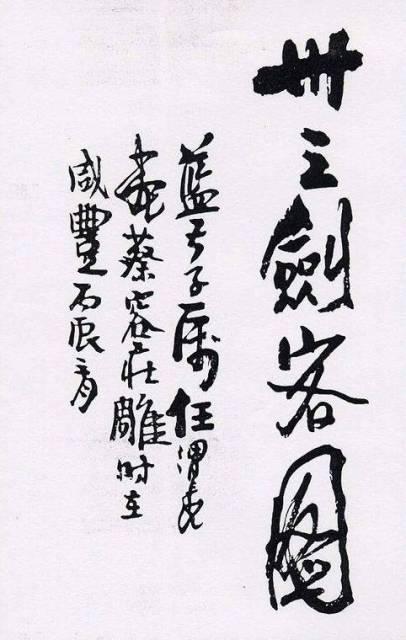 卅三劍客圖
藍子屬任渭長
畫蔡容莊雕时在
咸豐丙辰